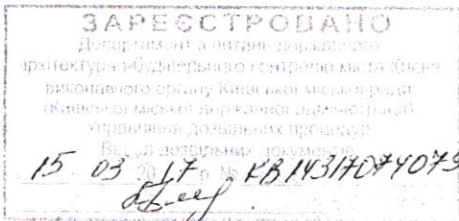 ЗАРЕЄСТРОВАНО
Департамент з питань державного
архітектурно-будівельного контролю міста Києва
виконавчого органу Київської міської ради
(Київської міської державної адміністрації)
Управління дозвільних процедур
Відділ дозвільних документів
15 03 2017 р. № КВ 143170740